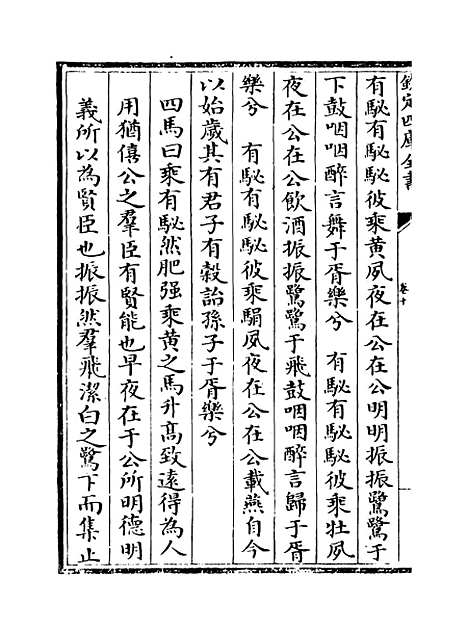 欽定四庫全書
卷十
有駜有駜駜彼乘黄夙夜在公在公明明振振鷺鷺于
下鼓咽咽醉言舞于胥樂兮　有駜有駜駜彼乘牡夙
夜在公在公飲酒振振鷺鷺于飛鼓咽咽醉言歸于胥
樂兮　有駜有駜駜彼乘駽夙夜在公在公載燕自今
以始歳其有君子有穀詒孫子于胥樂兮
四馬曰乘有駜然肥强乘黄之馬升髙致逺得為人
用猶僖公之羣臣有賢能也早夜在于公所明德明
義所以為賢臣也振振然羣飛潔白之鷺下而集止